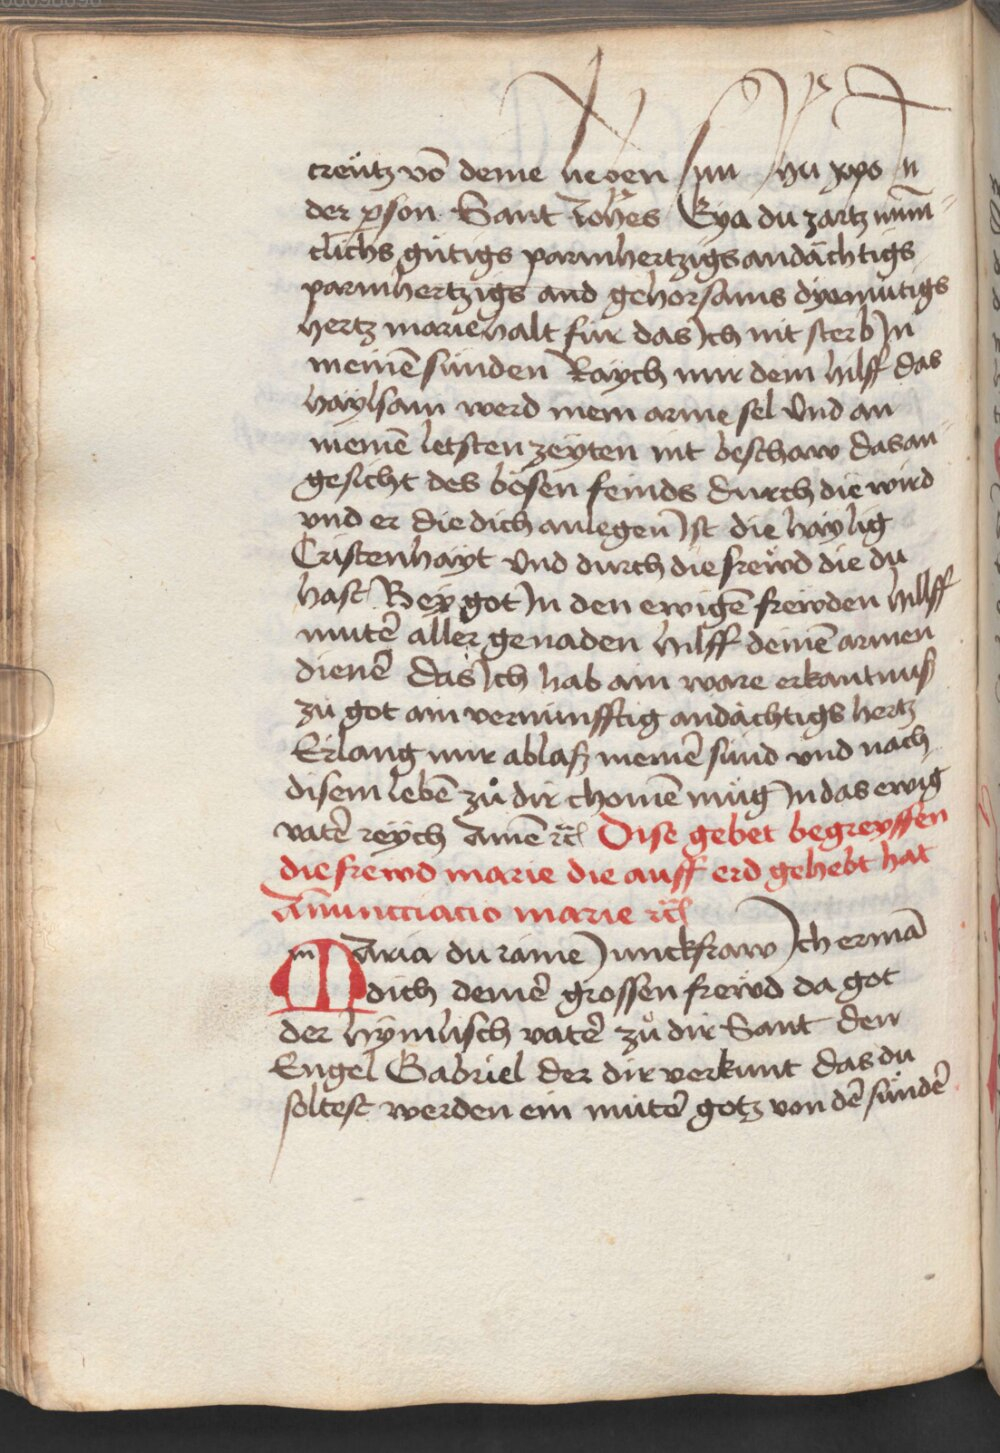 creütz võ deine lieben sun Jhu xp̃o Jn
der ꝑson Sant Joh̃es Eÿa du zartz mÿn̄-
clichs gütigs parmhertzigs andächtigs
parmhertzigs and gehorsams dyemütigs
hertz marie halt für das Jch nit sterb Jn
meinẽ sünden Raÿch mir dein hilff das
haÿlsam werd mein arme sel Vnd an
meinẽ letsten zeÿten nit beschaw das an-
gesicht des bösen feinds Durch die wird
vnd er die dich anlegen Ist die haÿlig
Cristenhaÿt Vnd durch die frewd die du
hast Beÿ got Jn den ewigẽ frewden hillff
mutẽ aller genaden hilff deinẽ armen
dienẽ Das Jch hab ain ware erkantnuß
zu got ain vernünfftig andächtigs hertz
Erlang mir ablaß meinẽ sünd vnd nach
disem lebẽ zů dir chomẽ müg Jn das ewig
vatẽ reÿch Amẽ ꝛc̃ Dise gebet begreyffen
die frewd marie die auff erd gehebt hat
Anuncciacio marie ꝛc̃
MAria du raine Junckfraw Jch ermã
dich deinẽ grossen frewd da got
der hÿmlisch vatẽ zů dir Sant Den
Engel Gabriel der dir verkunt das du
soltest werden ein mutẽ gotz von dẽ sündẽ